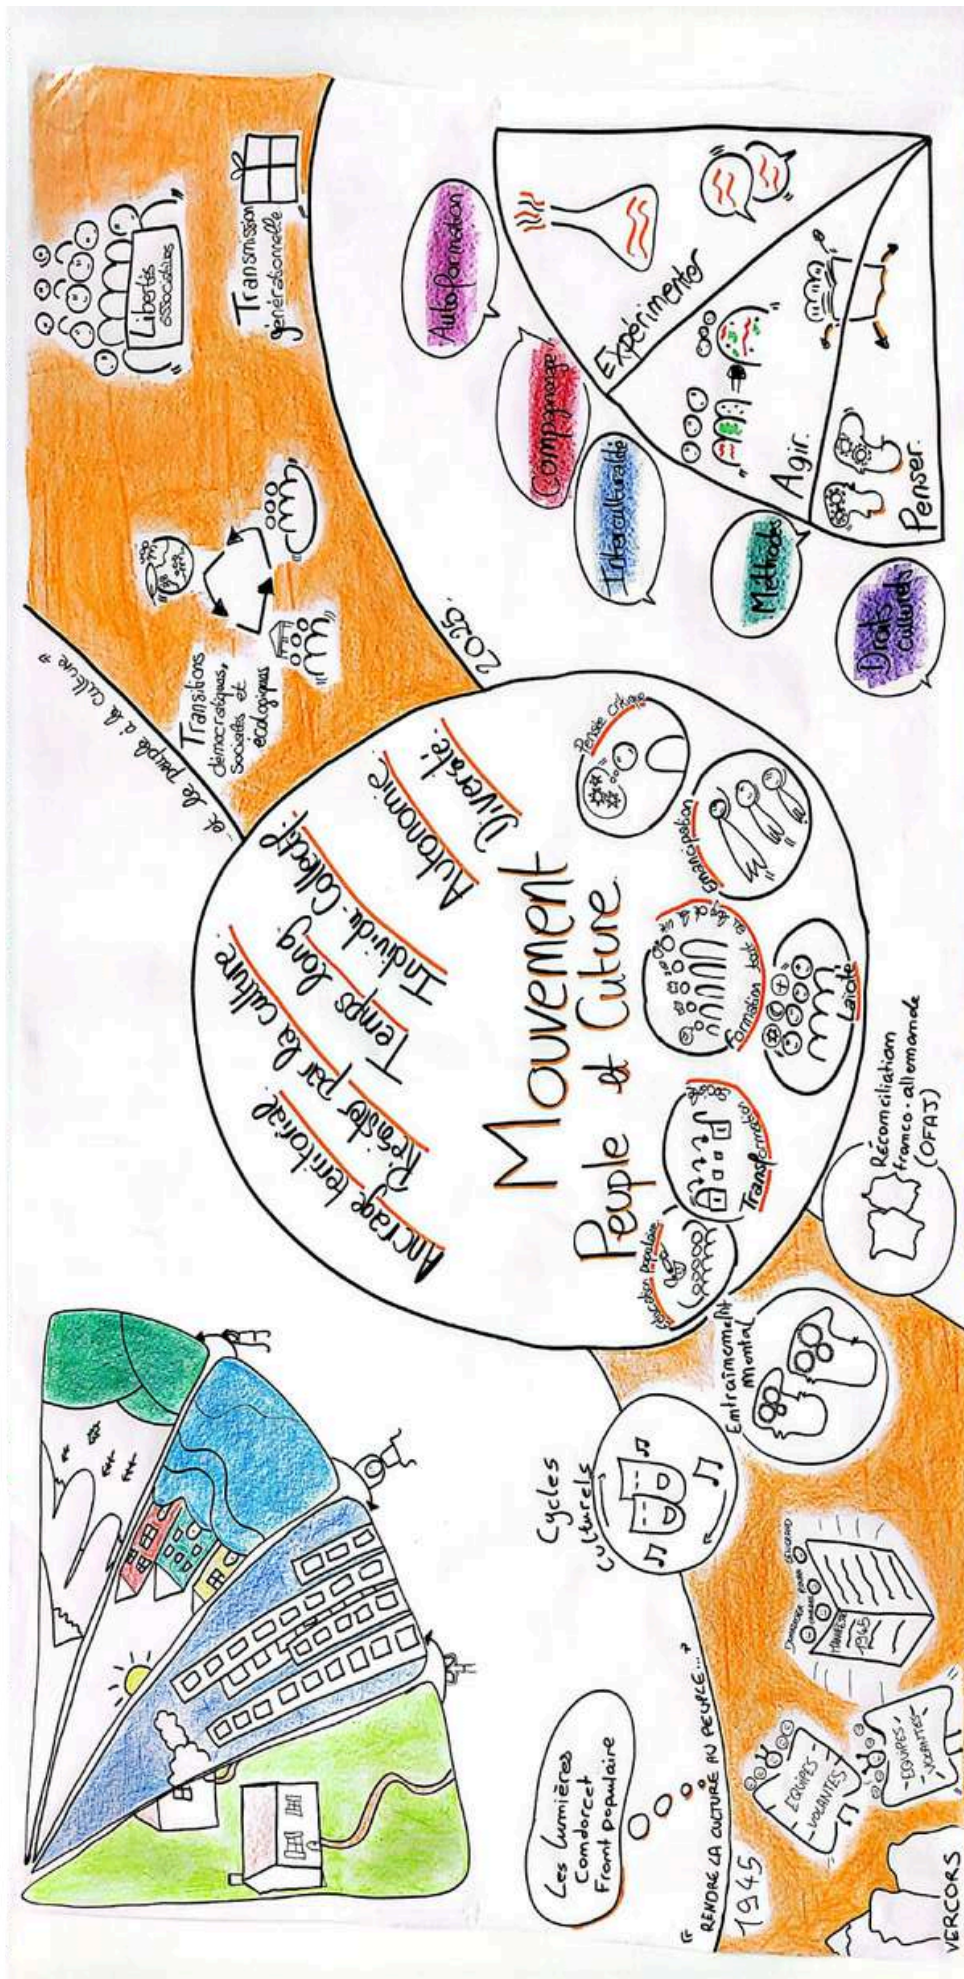 Les Lumières
Condorcet
Front populaire
« RENDRE LA CULTURE AU PEUPLE...
1945
VERCORS
EQUIPES
VOLANTES
- EQUIPES
VOLANTES -
MANIFESTE
1945
Cycles
culturels
Entraînement
mental
Réconciliation
franco-allemande
(OFAJ)
Ancrage territorial
Résister par la culture
Temps long
Individu - Collectif
Autonomie
Diversité
Mouvement
Peuple et Culture
Education populaire
Transformation sociale
Formation tout au long de la vie
Laïcité
Emancipation
Pensée critique
... et le peuple à la culture »
2025
Transitions
démocratiques,
sociales et
écologiques
Libertés
associatives
Transmission
générationnelle
Autoformation
Compagnonnage
Interculturalité
Méthodes
Droits
culturels
Expérimenter
Agir
Penser